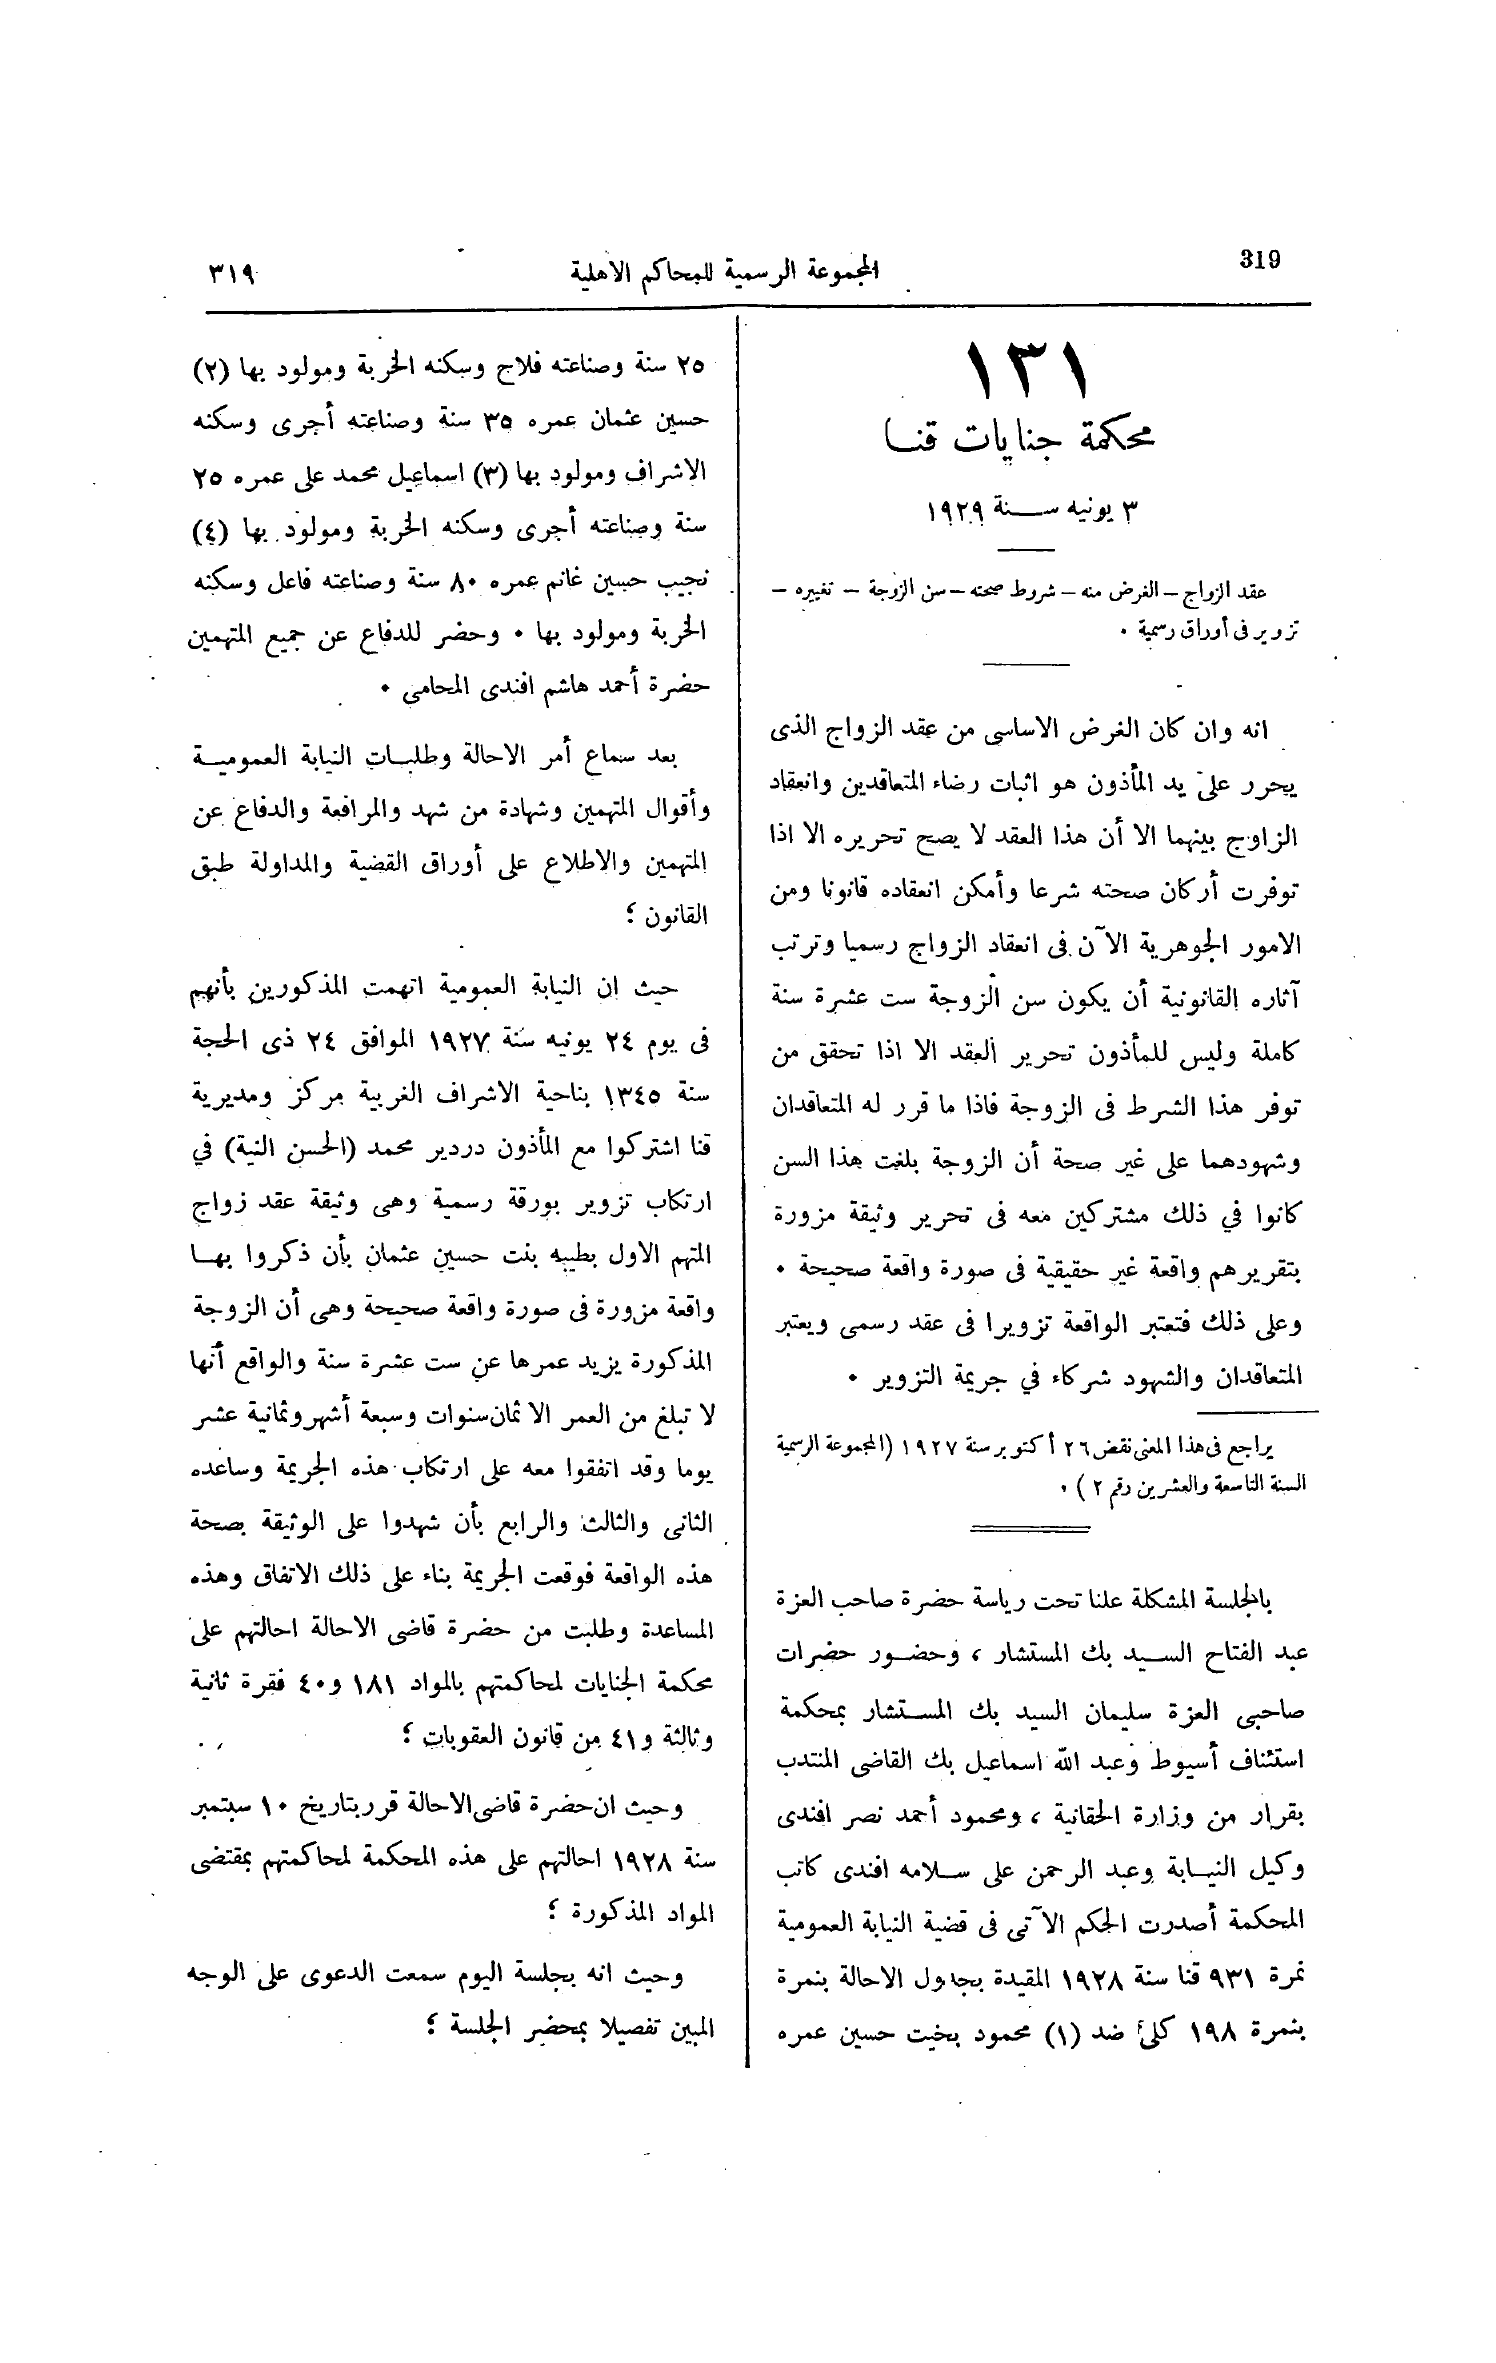 319
المجموعة الرسمية للمحاكم الاهلية
٣١٩
١٣١
محكمة جنايات قنا
٣ يونيه سنة ١٩٢٩
عقد الزواج – الغرض منه – شروط صحته – سن الزوجة – تغييره –
تزوير فى أوراق رسمية .
انه وان كان الغرض الاساسى من عقد الزواج الذى
يحرر على يد المأذون هو اثبات رضاء المتعاقدين وانعقاد
الزاوج بينهما الا أن هذا العقد لا يصح تحريره الا اذا
توفرت أركان صحته شرعا وأمكن انعقاده قانونا ومن
الامور الجوهرية الآن فى انعقاد الزواج رسميا وترتب
آثاره القانونية أن يكون سن الزوجة ست عشرة سنة
كاملة وليس للمأذون تحرير العقد الا اذا تحقق من
توفر هذا الشرط فى الزوجة فاذا ما قرر له المتعاقدان
وشهودهما على غير صحة أن الزوجة بلغت هذا السن
كانوا في ذلك مشتركين معه فى تحرير وثيقة مزورة
بتقريرهم واقعة غير حقيقية فى صورة واقعة صحيحة .
وعلى ذلك فتعتبر الواقعة تزويرا فى عقد رسمى ويعتبر
المتعاقدان والشهود شركاء في جريمة التزوير .
يراجع فى هذا المعنى نقض ٢٦ أكتوبر سنة ١٩٢٧ (المجموعة الرسمية
السنة التاسعة والعشرين رقم ٢ ) .
بالجلسة المشكلة علنا تحت رياسة حضرة صاحب العزة
عبد الفتاح السيد بك المستشار ، وحضور حضرات
صاحبى العزة سليمان السيد بك المستشار بمحكمة
استئناف أسيوط وعبد الله اسماعيل بك القاضى المنتدب
بقرار من وزارة الحقانية ، ومحمود أحمد نصر افندى
وكيل النيابة وعبد الرحمن على سلامه افندى كاتب
المحكمة أصدرت الحكم الآتى فى قضية النيابة العمومية
نمرة ٩٣١ قنا سنة ١٩٢٨ المقيدة بجدول الاحالة بنمرة
بنمرة ١٩٨ كلى ضد (١) محمود بخيت حسين عمره
٢٥ سنة وصناعته فلاح وسكنه الخربة ومولود بها (٢)
حسين عثمان عمره ٣٥ سنة وصناعته أجرى وسكنه
الاشراف ومولود بها (٣) اسماعيل محمد على عمره ٢٥
سنة وصناعته أجرى وسكنه الخربة ومولود بها (٤)
نجيب حسين غانم عمره ٨٠ سنة وصناعته فاعل وسكنه
الخربة ومولود بها . وحضر للدفاع عن جميع المتهمين
حضرة أحمد هاشم افندى المحامى .
بعد سماع أمر الاحالة وطلبات النيابة العمومية
وأقوال المتهمين وشهادة من شهد والمرافعة والدفاع عن
المتهمين والاطلاع على أوراق القضية والمداولة طبق
القانون ؛
حيث ان النيابة العمومية اتهمت المذكورين بأنهم
فى يوم ٢٤ يونيه سنة ١٩٢٧ الموافق ٢٤ ذى الحجة
سنة ١٣٤٥ بناحية الاشراف الغربية مركز ومديرية
قنا اشتركوا مع المأذون دردير محمد (الحسن النية) في
ارتكاب تزوير بورقة رسمية وهى وثيقة عقد زواج
المتهم الاول بطيبه بنت حسين عثمان بأن ذكروا بها
واقعة مزورة فى صورة واقعة صحيحة وهى أن الزوجة
المذكورة يزيد عمرها عن ست عشرة سنة والواقع أنها
لا تبلغ من العمر الا ثمان سنوات وسبعة أشهر وثمانية عشر
يوما وقد اتفقوا معه على ارتكاب هذه الجريمة وساعده
الثانى والثالث والرابع بأن شهدوا على الوثيقة بصحة
هذه الواقعة فوقعت الجريمة بناء على ذلك الاتفاق وهذه
المساعدة وطلبت من حضرة قاضى الاحالة احالتهم على
محكمة الجنايات لمحاكمتهم بالمواد ١٨١ و٤٠ فقرة ثانية
وثالثة و٤١ من قانون العقوبات ؛
وحيث ان حضرة قاضى الاحالة قرر بتاريخ ١٠ سبتمبر
سنة ١٩٢٨ احالتهم على هذه المحكمة لمحاكمتهم بمقتضى
المواد المذكورة ؛
وحيث انه بجلسة اليوم سمعت الدعوى على الوجه
المبين تفصيلا بمحضر الجلسة ؛